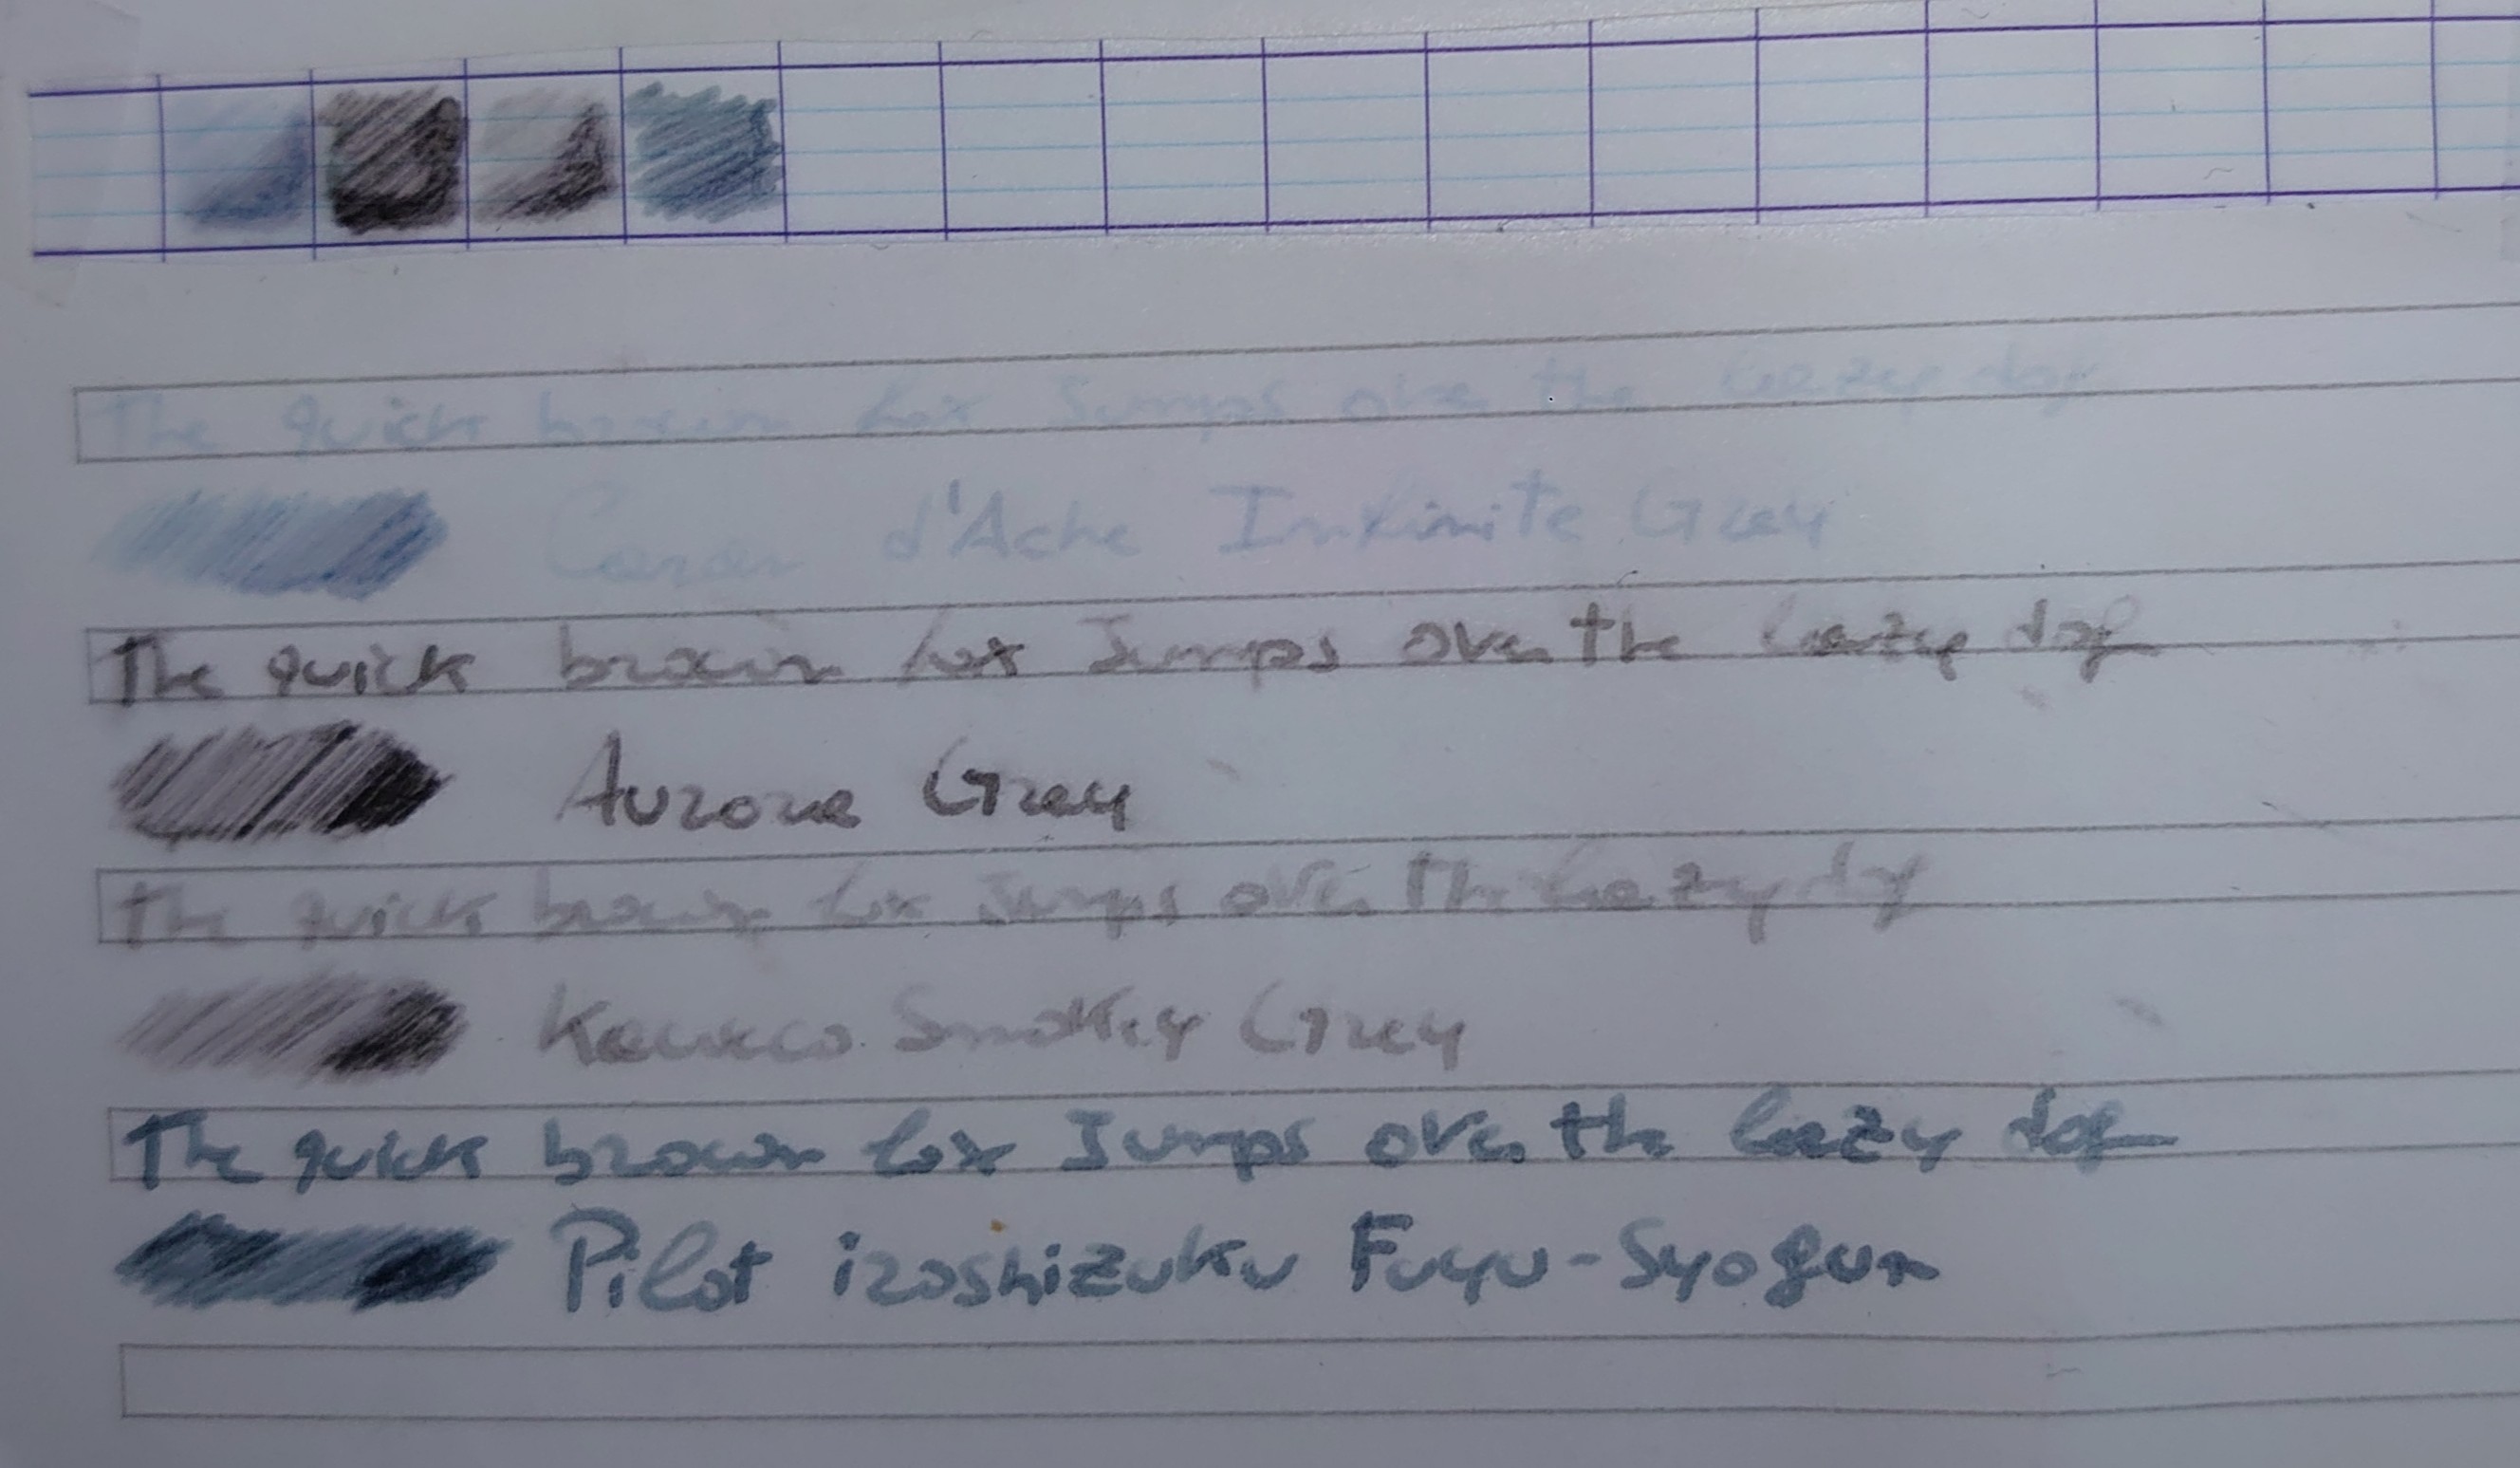 The quick brown fox Jumps over the lazy dog
Caran d'Ache Infinite Grey
The quick brown fox Jumps over the lazy dog
Aurora Grey
The quick brown fox Jumps over the lazy dog
Kaweco Smokey Grey
The quick brown fox Jumps over the lazy dog
Pilot iroshizuku Fuyu-Syogun